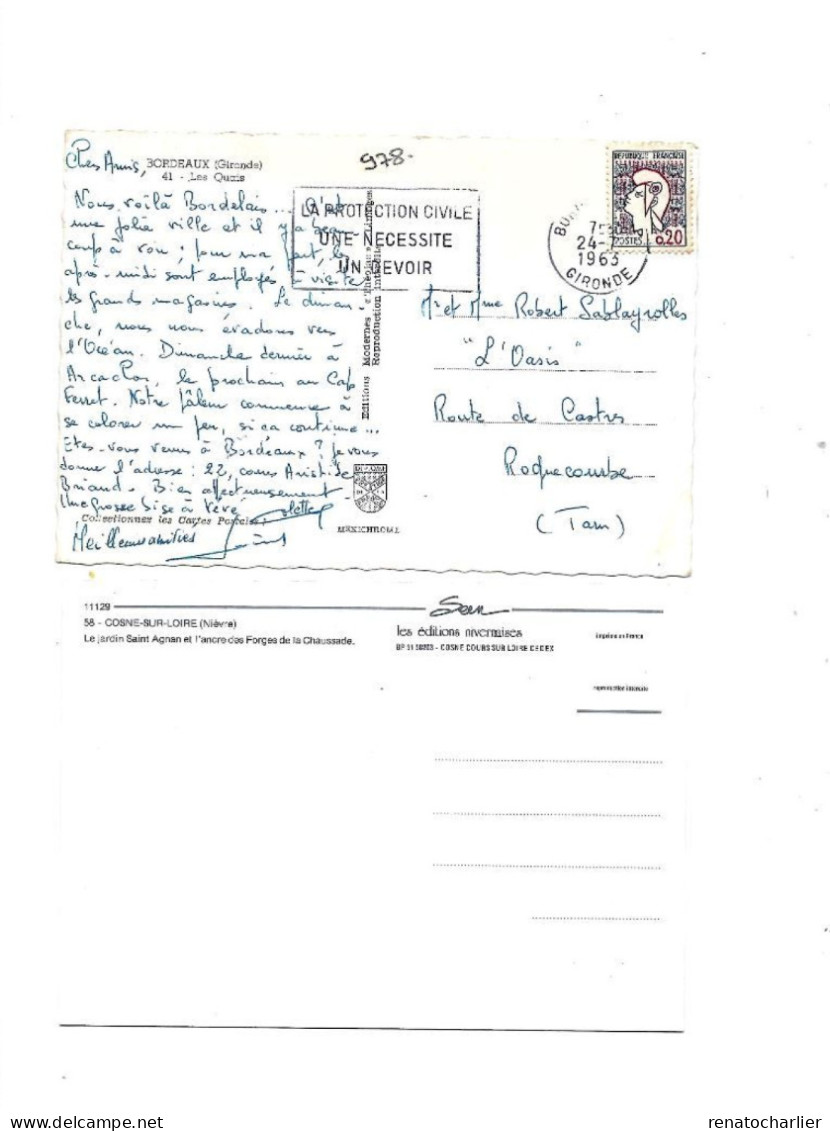 Chers Amis,
BORDEAUX (Gironde)
41 - Les Quais
978-
Nous voilà Bordelais... C'est
une jolie ville et il y a beau-
coup à voir ; pour ma part, les
après-midi sont employés à visiter
les grands magasins. Le diman-
che, nous nous évadons vers
l'Océan. Dimanche dernier à
Arcachon, le prochain au Cap
Ferret. Notre pâleur commence à
se colorer un peu, si ça continue...
Etes-vous venus à Bordeaux ? Je vous
donne l'adresse : 22, cours Aristide
Briand. Bien affectueusement
Une grosse bise à Vévé
Colette
Collectionnez les Cartes Postales
Meilleures amitiés
LA PROTECTION CIVILE
UNE NECESSITE
UN DEVOIR
Editions Modernes
Reproduction interdite
MEXICHROME
REPUBLIQUE FRANÇAISE
POSTES 0,20
24-7
1963
GIRONDE
Mr et Mme Robert Sablayrolles
"L'Oasis"
Route de Castres
Roquecourbe
(Tarn)
11129
58 - COSNE-SUR-LOIRE (Nièvre)
Le jardin Saint Agnan et l'ancre des Forges de la Chaussade.
les éditions nivernaises
COSNE COURS SUR LOIRE CEDEX
imprimé en France
reproduction interdite
renatocharlier